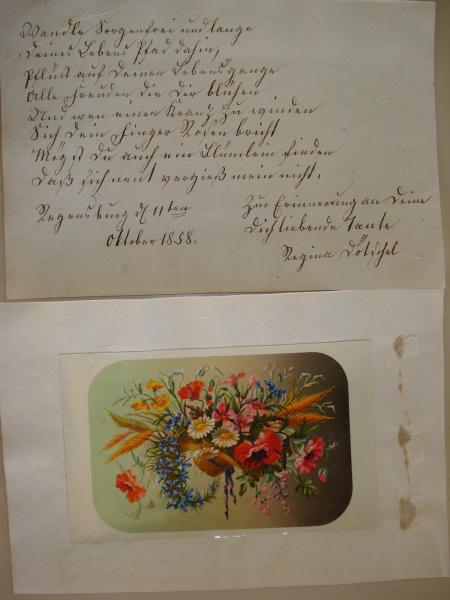 Wandle Sorgenfrei und lange
Deines Lebens Pfad dahin,
Pflück auf Deinem Lebensgange
Alle Freuden die Dir blühen
Und wen einen Kranz zu winden
Sich Dein Finger Rosen bricht
Mögst Du auch ein Blümlein finden
Daß sich nent vergieß mein nicht.
Regensburg d. 11ten
Oktober 1858.
Zur Erinnerung an Deine
Dichliebende Tante
Regina Dötschel